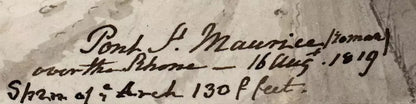 Pont St. Maurice (Roman)
over the Rhone — 16 Augt. 1819
Span of ye Arch 130 feet.